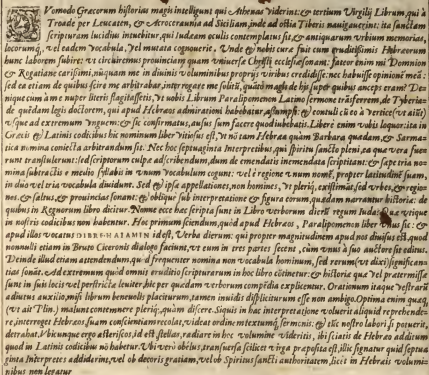 Vomodo Græcorum historias magis intelligunt qui Athenas viderint: & tertium Virgilij Librum, qui à
Troade per Leucaten, & Acroceraunia ad Siciliam, inde ad ostia Tiberis nauigauerint: ita sanctam
scripturam lucidius intuebitur, qui Iudæam oculis contemplatus sit, & antiquarum vrbium memorias,
locorumq́, vel eadem vocabula, vel mutata cognouerit. Vnde & nobis curæ fuit cum eruditissimis Hebræorum
hunc laborem subire: vt circuiremus prouinciam quam vniuersæ Christi ecclesiæ sonant. fateor enim mi Domnion
& Rogatiane carissimi, nūquam me in diuinis voluminibus proprijs viribus credidisse: nec habuisse opinionē meā:
sed ea etiam de quibus scire me arbitrabar, interrogare me solitū, quātò magis de his super quibus anceps eram? De
nique cum à me nuper literis flagitassetis, vt vobis Librum Paralipomenon Latino sermone trāsferrem, de Tyberia-
de quādam legis doctorem, qui apud Hebræos admirationi habebatur, assumpsi: & contuli cū eo à vertice (vt aiūt)
vsque ad extremum vnguem: & sic confirmatus, ausus sum facere quod iubebatis. Liberè enim vobis loquor, ita in
Græcis & Latinis codicibus hic nominum liber vitiosus est, vt nō tam Hebræa quàm Barbara quædam, & Sarma-
tica nomina coniecta arbitrandum sit. Nec hoc septuaginta Interpretibus, qui spiritu sancto pleni, ea quæ vera fuerāt
runt transtulerunt: sed scriptorum culpæ adscribendum, dum de emendatis inemendata scriptitant: & sæpe tria no-
mina subtractis è medio syllabis in vnum vocabulum cogunt: vel è regione vnum nomē, propter latitudinē suam,
in duo vel tria vocabula diuidunt. Sed & ipsæ appellationes, non homines, vt pleriq́, æxistimāt: sed vrbes, & regio-
nes, & saltus, & prouincias sonant: & obliquè sub interpretatione & figura eorum, quædam narrantur historiæ: de
quibus in Regnorum libro dicitur. Nonne ecce hæc scripta sunt in Libro verborum dierū regum Iuda? quæ vtique
in nostris codicibus non habentur. Hoc primum sciendum, quòd apud Hebræos, Paralipomenon liber vnus sit: &
apud illos vocatur DIBRE-HAIAMIN id est, Verba dierum: qui propter magnitudinem apud nos diuisus est. quod
nonnulli etiam in Bruto Ciceronis dialogo faciunt, vt eum in tres partes secent, cum vnus à suo auctore sit editus.
Deinde illud etiam attendendum, quòd frequenter nomina non vocabula hominum, sed rerum (vt dixi) significan-
tias sonāt. Ad extremum quòd omnis eruditio scripturarum in hoc libro cōtinetur: & historiæ quæ vel prætermissæ
sunt in suis locis vel perstrictæ leuiter, hic per quædam verborum compēdia explicentur. Orationum itaque vestrarū
adiutus auxilio, misi librum beneuolis placiturum, tamen inuidis displiciturum esse non ambigo. Optima enim quæq́,
(vt ait Plin.) malunt contemnere pleriq́, quàm discere. Siquis in hac interpretatione voluerit aliquid reprehende-
re, interroget Hebræos, suam conscientiam recolat, videat ordinem textumq́ sermonis: & tūc nostro labori, si potuerit,
detrahat. Vbicunque ergo asteriscos, id est stellas, radiare in hoc volumine videritis, ibi sciatis de Hebræo additum
quod in Latinis codicibus nō habetur. Vbi verò obelus, transuersa scilicet virga præposita est, illic signatur quid septua
ginta Interpretes addiderint, vel ob decoris gratiam, vel ob Spiritus sancti authoritatem, licèt in Hebræis volumini-
bus non legatur